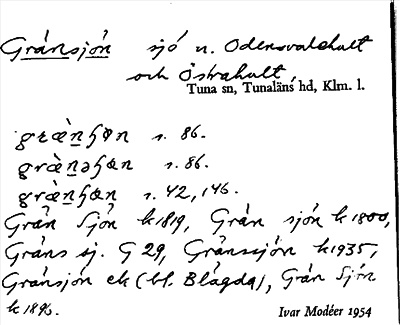 Gränsjön sjö n. Odensvalehult
och Östrahult
Tuna sn, Tunaläns hd, Klm. l.
s. 86.
s. 86.
s. 42, 146.
Grän Sjön k1819, Grän sjön k1800,
Gräns sj. G 29, Gränssjön k1935,
Gränsjön ek (bl. Blågda), Grän Sjön
k1896.
Ivar Modéer 1954